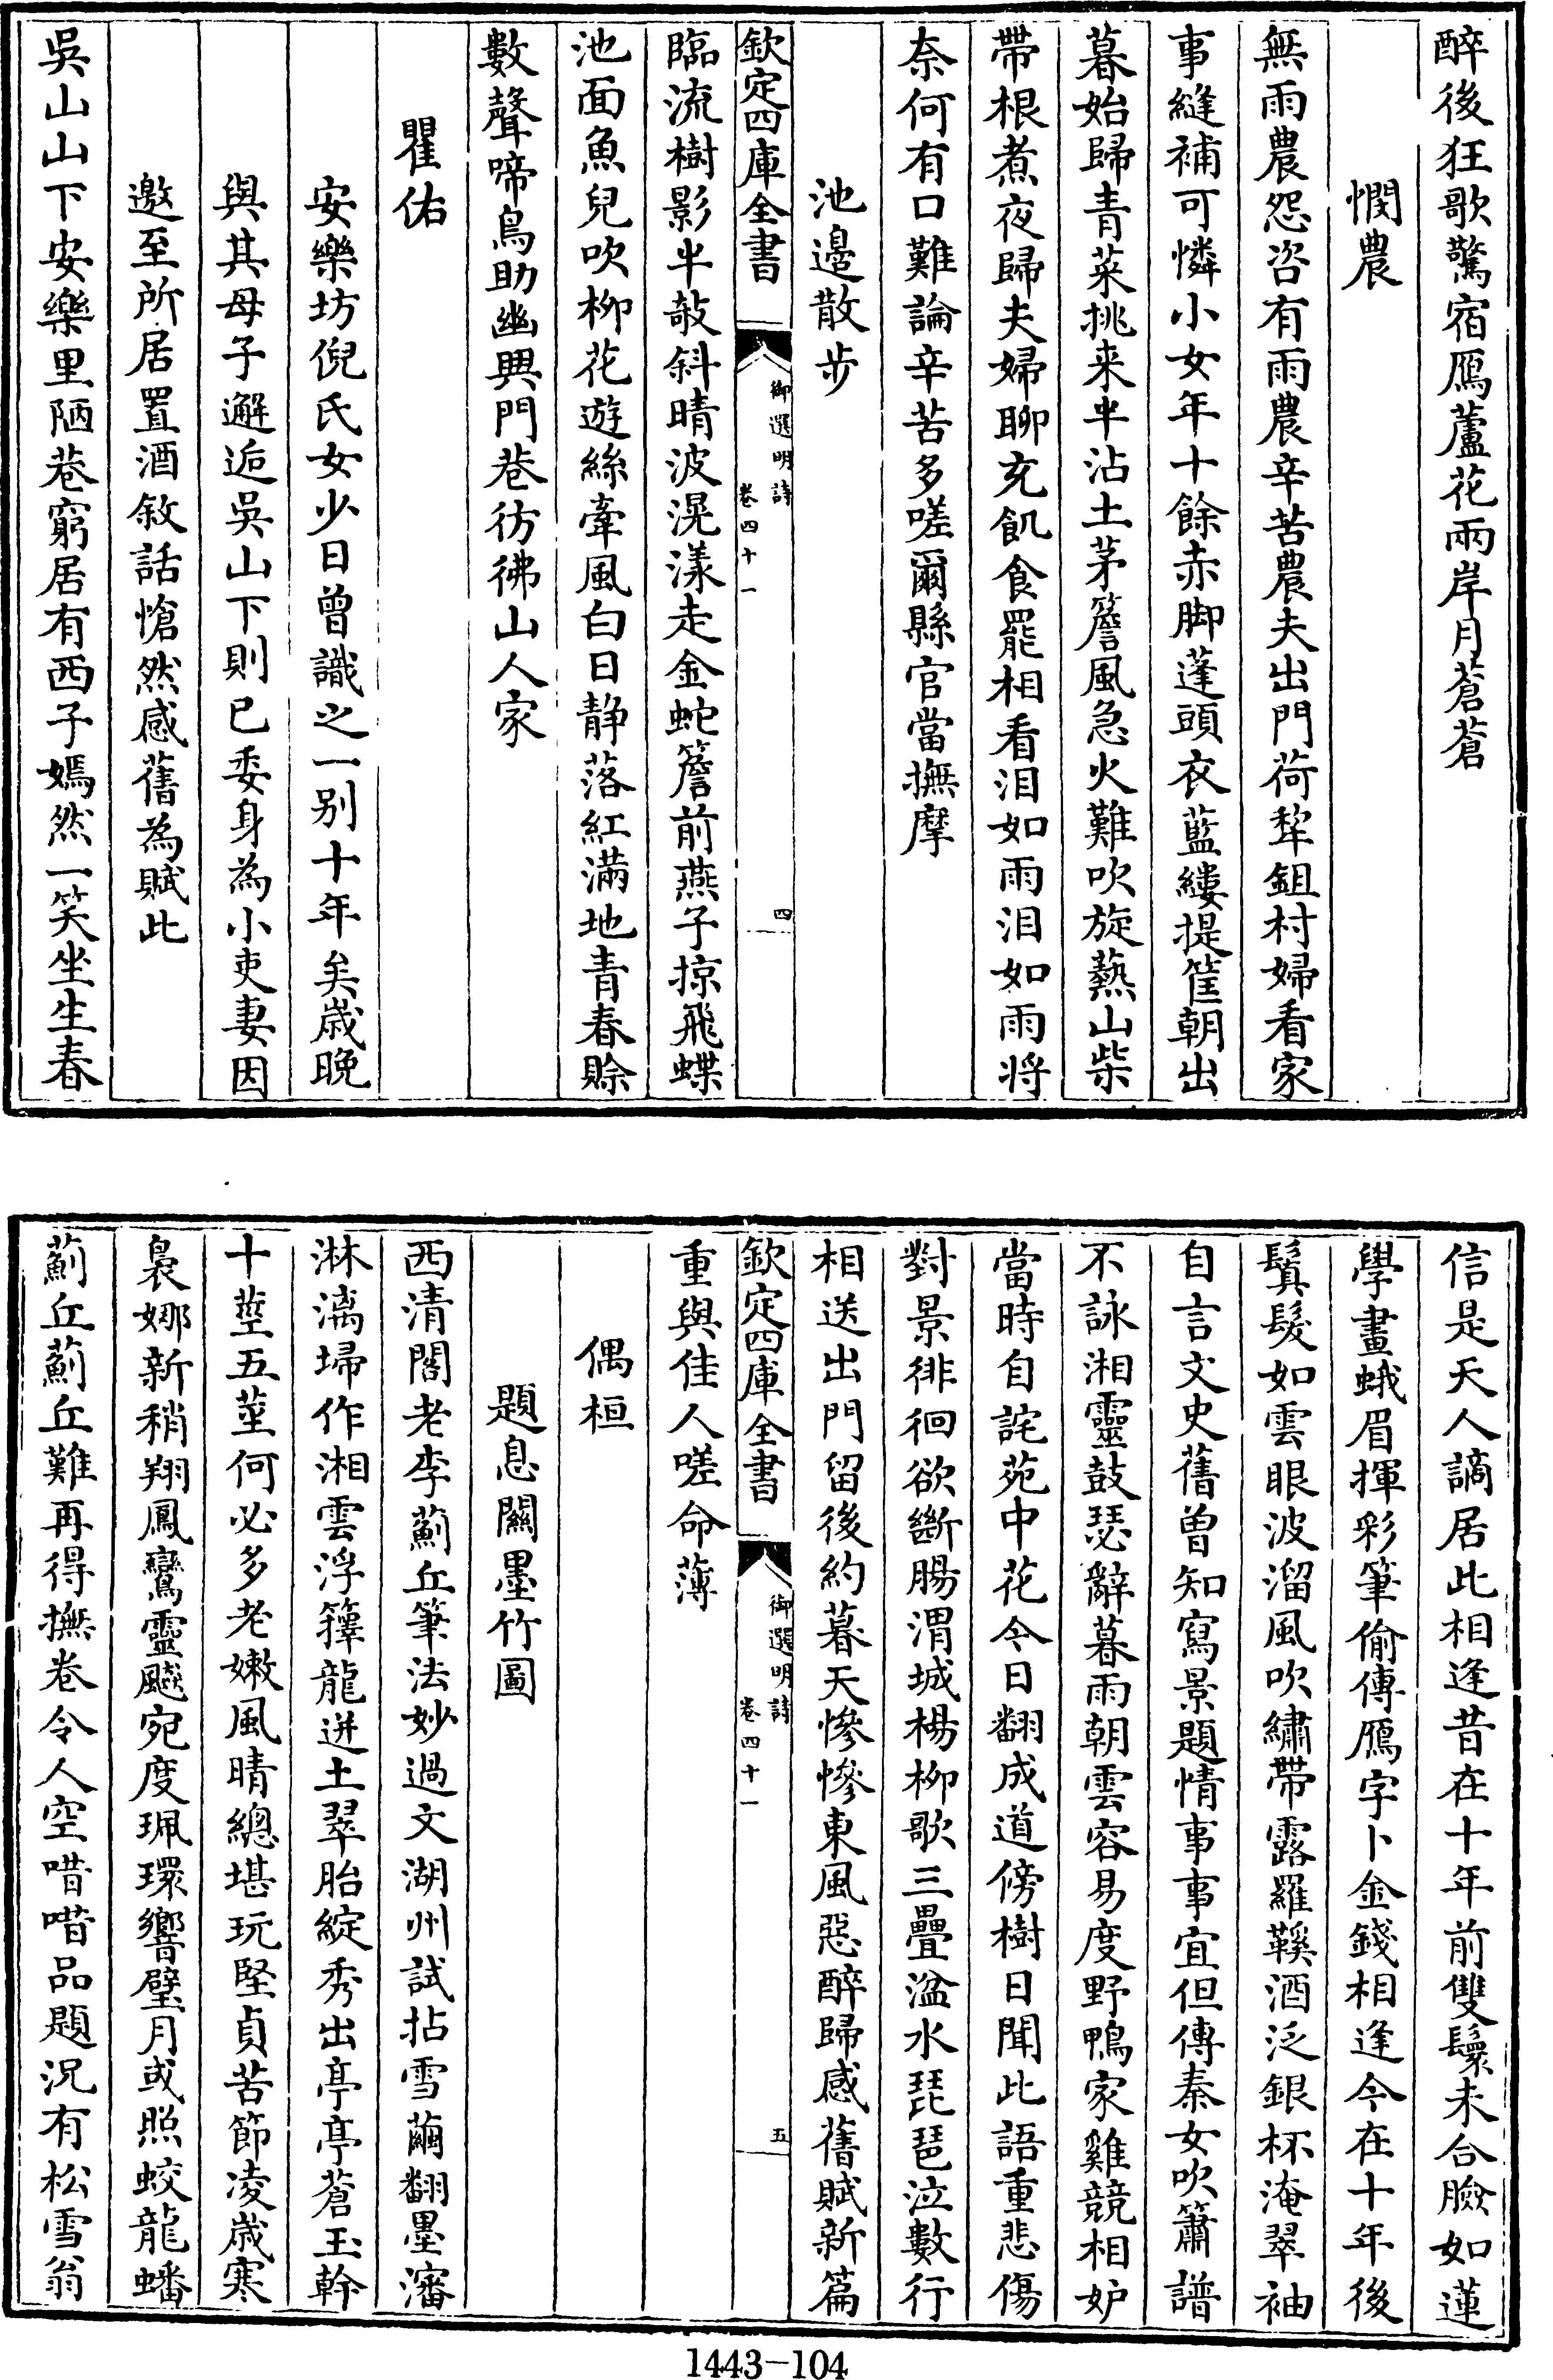 醉後狂歌驚宿鴈蘆花兩岸月蒼蒼
憫農
無雨農怨咨有雨農辛苦農夫出門荷犂鉏村婦看家
事縫補可憐小女年十餘赤脚蓬頭衣藍縷提筐朝出
暮始歸青菜挑来半沾土茅簷風急火難吹旋爇山柴
帶根煮夜歸夫婦聊充飢食罷相看泪如雨泪如雨将
奈何有口難論辛苦多嗟爾縣官當撫摩
池邉散步
欽定四庫全書
御選明詩
卷四十一
四
臨流樹影半敧斜晴波滉漾走金蛇簷前燕子掠飛蝶
池面魚兒吹柳花遊絲牽風白日静落紅滿地青春賒
數聲啼鳥助幽興門巷彷彿山人家
瞿佑
安樂坊倪氏女少日曾識之一别十年矣歲晚
與其母子邂逅吳山下則已委身為小吏妻因
邀至所居置酒敘話愴然感舊為賦此
吳山山下安樂里陋巷窮居有西子嫣然一笑坐生春
信是天人謫居此相逢昔在十年前雙鬟未合臉如蓮
學畫蛾眉揮彩筆偷傳鴈字卜金錢相逢今在十年後
鬒髮如雲眼波溜風吹繡帶露羅鞵酒泛銀杯淹翠袖
自言文史舊曾知寫景題情事事宜但傳秦女吹簫譜
不詠湘靈鼓瑟辭暮雨朝雲容易度野鴨家雞競相妒
當時自詫苑中花今日翻成道傍樹日聞此語重悲傷
對景徘徊欲斷腸渭城楊柳歌三疊湓水琵琶泣數行
相送出門留後約暮天慘慘東風惡醉歸感舊賦新篇
欽定四庫全書
御選明詩
卷四十一
五
重與佳人嗟命薄
偶桓
題息闗墨竹圖
西清閣老李薊丘筆法妙過文湖州試拈雪繭翻墨瀋
淋漓埽作湘雲浮籜龍迸土翠胎綻秀出亭亭蒼玉幹
十莖五莖何必多老嫩風晴總堪玩堅貞苦節凌歲寒
裊娜新稍翔鳳鸞靈飈宛度珮環響璧月或照蛟龍蟠
薊丘薊丘難再得撫卷令人空喈喈品題况有松雪翁
1443-104